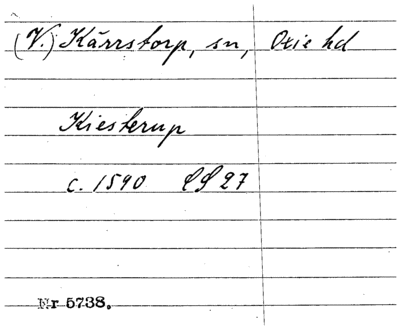 (V.) Kärrstorp, sn, Oxie hd
Kiesterup
c. 1590 LS 27
Nr 5738.